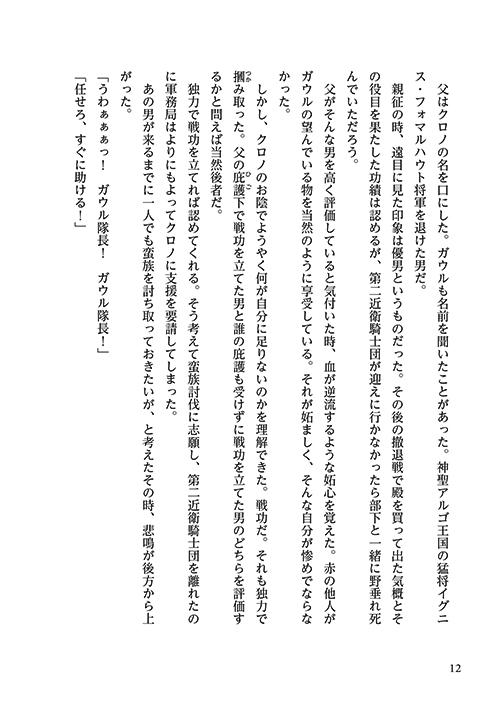 父はクロノの名を口にした。ガウルも名前を聞いたことがあった。神聖アルゴ王国の猛将イグニ
ス・フォマルハウト将軍を退けた男だ。
　親征の時、遠目に見た印象は優男というものだった。その後の撤退戦で殿を買って出た気概とそ
の役目を果たした功績は認めるが、第二近衛騎士団が迎えに行かなかったら部下と一緒に野垂れ死
んでいただろう。
　父がそんな男を高く評価していると気付いた時、血が逆流するような妬心を覚えた。赤の他人が
ガウルの望んでいる物を当然のように享受している。それが妬ましく、そんな自分が惨めでならな
かった。
　しかし、クロノのお陰でようやく何が自分に足りないのかを理解できた。戦功だ。それも独力で
摑み取った。父の庇護下で戦功を立てた男と誰の庇護も受けずに戦功を立てた男のどちらを評価す
るかと問えば当然後者だ。
　独力で戦功を立てれば認めてくれる。そう考えて蛮族討伐に志願し、第二近衛騎士団を離れたの
に軍務局はよりにもよってクロノに支援を要請してしまった。
　あの男が来るまでに一人でも蛮族を討ち取っておきたいが、と考えたその時、悲鳴が後方から上
がった。
「うわぁぁぁっ！　ガウル隊長！　ガウル隊長！」
「任せろ、すぐに助ける！」
12